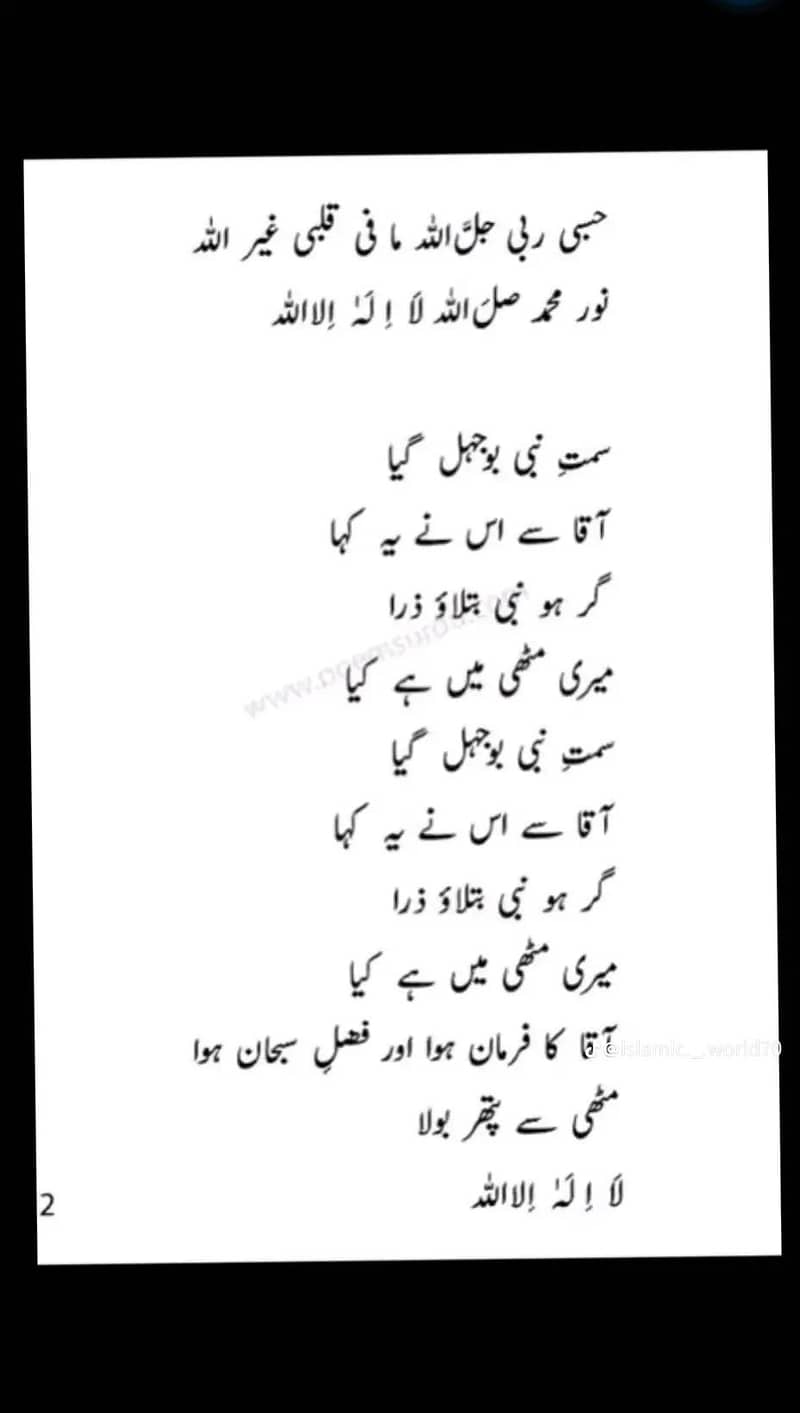 حسبی ربی جلَّ اللہ ما فی قلبی غیر اللہ
نور محمد صلَ اللہ لَا اِ لَہٰ اِلا اللہ
سمتِ نبی بوجہل گیا
آقا سے اس نے یہ کہا
گر ہو نبی بتلاؤ ذرا
میری مٹھی میں ہے کیا
سمتِ نبی بوجہل گیا
آقا سے اس نے یہ کہا
گر ہو نبی بتلاؤ ذرا
میری مٹھی میں ہے کیا
آقا کا فرمان ہوا اور فضلِ سبحان ہوا
@islamic._.world70
مٹھی سے پتھر بولا
لَا اِ لَہٰ اِلا اللہ
2